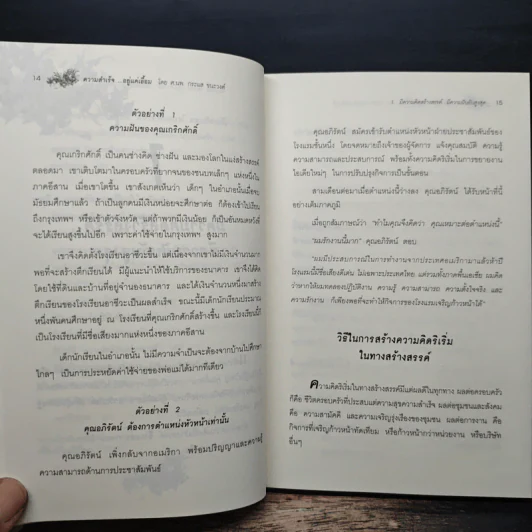 14 ความสำเร็จ ...อยู่แค่เอื้อม โดย
ตัวอย่างที่ 1
ความฝันของคุณเกริกศักดิ์
คุณเกริกศักดิ์ เป็นคนช่างคิด ช่างฝัน และมองโลกในแง่สร้างสรรค์
ตลอดมา เขาเติบโตมาในครอบครัวที่ยากจนของชนบทเล็กๆ แห่งหนึ่งใน
ภาคอีสาน เมื่อเขาโตขึ้น เขาสังเกตเห็นว่า เด็กๆ ในอำเภอนั้นเมื่อจบ
มัธยมศึกษาแล้ว ถ้าเป็นลูกคนมีเงินหน่อยจะศึกษาต่อ ก็ต้องเข้าไปเรียน
ถึงกรุงเทพฯ หรือเข้าตัวจังหวัด แต่ถ้าพวกมีเงินน้อย ก็เป็นอันหมดหวังที่
จะได้เรียนสูงขึ้นไปอีก เพราะค่าใช้จ่ายในกรุงเทพฯ สูงมาก
เขาจึงคิดตั้งโรงเรียนอาชีวะขึ้น แต่เนื่องจากเขาไม่มีเงินจำนวนมาก
พอที่จะสร้างตึกเรียนได้ มีผู้แนะนำให้ใช้บริการของธนาคาร เขาจึงได้คิด
โดยใช้ที่ดินและบ้านที่อยู่จำนองธนาคาร และได้เงินจำนวนหนึ่งมาสร้าง
ตึกเรียนของโรงเรียนอาชีวะเป็นผลสำเร็จ ขณะนี้มีเด็กนักเรียนประมาณ
หนึ่งพันคนศึกษาอยู่ ณ โรงเรียนที่คุณเกริกศักดิ์สร้างขึ้น และโรงเรียนนี้
เป็นโรงเรียนที่มีชื่อเสียงมากแห่งหนึ่งของภาคอีสาน
เด็กนักเรียนในอำเภอนั้น ไม่มีความจำเป็นจะต้องจากบ้านไปศึกษา
ไกลๆ เป็นการประหยัดค่าใช้จ่ายของพ่อแม่ได้มากทีเดียว
ตัวอย่างที่ 2
คุณอภิรัตน์ ต้องการตำแหน่งหัวหน้าเท่านั้น
คุณอภิรัตน์ เพิ่งกลับจากอเมริกา พร้อมปริญญาและความรู้
ความสามารถด้านการประชาสัมพันธ์
15
คุณอภิรัตน์ สมัครเข้ารับตำแหน่งหัวหน้าฝ่ายประชาสัมพันธ์ของ
โรงแรมชั้นหนึ่ง โดยจดหมายถึงเจ้าของผู้จัดการ แจ้งคุณสมบัติ ความรู้
ความสามารถและประสบการณ์ พร้อมทั้งความคิดริเริ่มในการขยายงาน
ไอเดียใหม่ๆ ในการปรับปรุงกิจการเป็นขั้นตอน
สามเดือนต่อมาเมื่อตำแหน่งนี้ว่างลง คุณอภิรัตน์ ได้รับหน้าที่นี้
อย่างเต็มภาคภูมิ
เมื่อถูกสัมภาษณ์ว่า "ทำไมคุณจึงคิดว่า คุณเหมาะต่อตำแหน่งนี้"
"ผมรักงานนี้มาก" คุณอภิรัตน์ ตอบ
"ผมมีประสบการณ์ในการทำงานจากประเทศอเมริกามาแล้วห้าปี
โรงแรมนี้มีชื่อเสียงดีเด่น ไม่เฉพาะประเทศไทย แต่รวมทั้งภาคพื้นเอเชีย ผมคิด
ว่าหากให้ผมทดลองปฏิบัติงาน ความรู้ ความสามารถ ความตั้งใจจริง และ
ความรักงาน ก็เพียงพอที่จะทำให้กิจการของโรงแรมเจริญก้าวหน้าได้"
วิธีในการสร้างความคิดริเริ่ม
ในทางสร้างสรรค์
ความคิดริเริ่มในทางสร้างสรรค์มีแต่ผลดีในทุกทาง ผลต่อครอบครัว
ก็คือ ชีวิตครอบครัวที่ประสบแต่ความสุขความสำเร็จ ผลต่อชุมชนและสังคม
คือ ความสามัคคี และความเจริญรุ่งเรืองของชุมชน ผลต่อการงาน คือ
กิจการที่เจริญก้าวหน้าทัดเทียม หรือก้าวหน้ากว่าหน่วยงาน หรือบริษัท
อื่นๆ